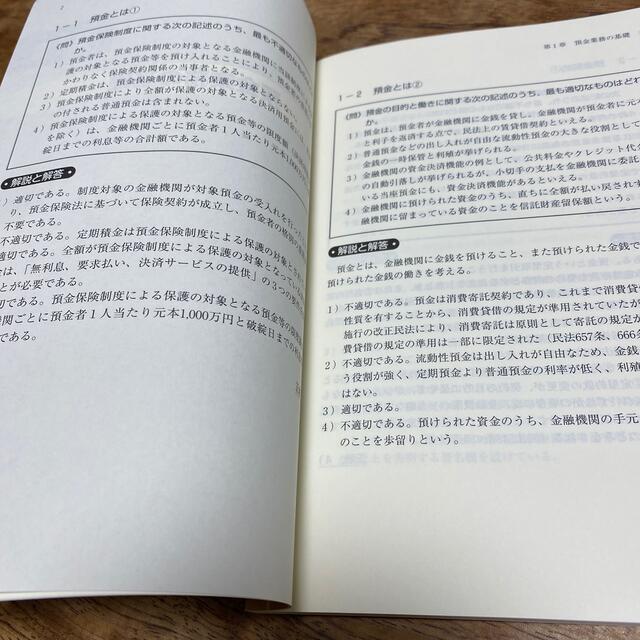 2
1-1 預金とは①
《問》預金保険制度に関する次の記述のうち、最も不適切な
か。
1）預金者は、預金保険制度の対象となる金融機関に
護の対象となる預金等を預け入れることにより、預金
かわりなく保険契約の当事者となる。
2）定期積金は、預金保険制度による保護の対象とならない。
3）預金保険制度により全額が保護の対象となる決済用預金
の付される普通預金は含まれない。
4）預金保険制度による保護の対象となる預金等の限度額
を除く）は、金融機関ごとに預金者1人当たり元本1
綻日までの利息等の合計額である。
●解説と解答●
）適切である。制度対象の金融機関が対象預金の受入れを行っ
り、預金保険法に基づいて保険契約が成立し、預金者の
不要である。
不適切である。定期積金は預金保険制度による保護の対象と
適切である。全額が預金保険制度による保護の対象となる
金は、「無利息、要求払い、決済サービスの提供」の3つの要
とが必要である。
切である。預金保険制度による保護の対象となる預金等の限
関ごとに預金者1人当たり元本1,000万円と破綻日までの
である。
第1章 預金業務の基礎
1-2 預金とは②
《問》預金の目的と働きに関する次の記述のうち、最も適切なものはどれ
か。
1）預金は、預金者が金融機関に金銭を貸し、金融機関が預金者に元
と利子を返済する点で、民法上の賃貸借契約といえる。
2）普通預金などの出し入れが自由な流動性預金の大きな役割として
金銭の一時保管と利殖が挙げられる。
3）金融機関の資金決済機能の例として、公共料金やクレジット代金
の自動引落しが挙げられるが、小切手の支払を金融機関に委託
いる当座預金にも、資金決済機能があるといえる。
4）金融機関に預けられた資金のうち、直ちに全額が払い戻され
融機関に留まっている資金のことを信託財産留保額という。
●解説と解答●
預金とは、金融機関に金銭を預けること、また預けられた金銭で
預けられた金銭の働きを考える。
1）不適切である。預金は消費寄託契約であり、これまで消費貸
性質を有することから、消費貸借の規定が準用されていたが
施行の改正民法により、消費寄託は原則として寄託の規定が
費貸借の規定の準用は一部に限定された（民法657条、666条
2）不適切である。流動性預金は出し入れが自由なため、金銭
う役割が強く、定期預金より普通預金の利率が低く、利殖
はない。
3）適切である。
4）不適切である。預けられた資金のうち、金融機関の手元
のことを歩留りという。